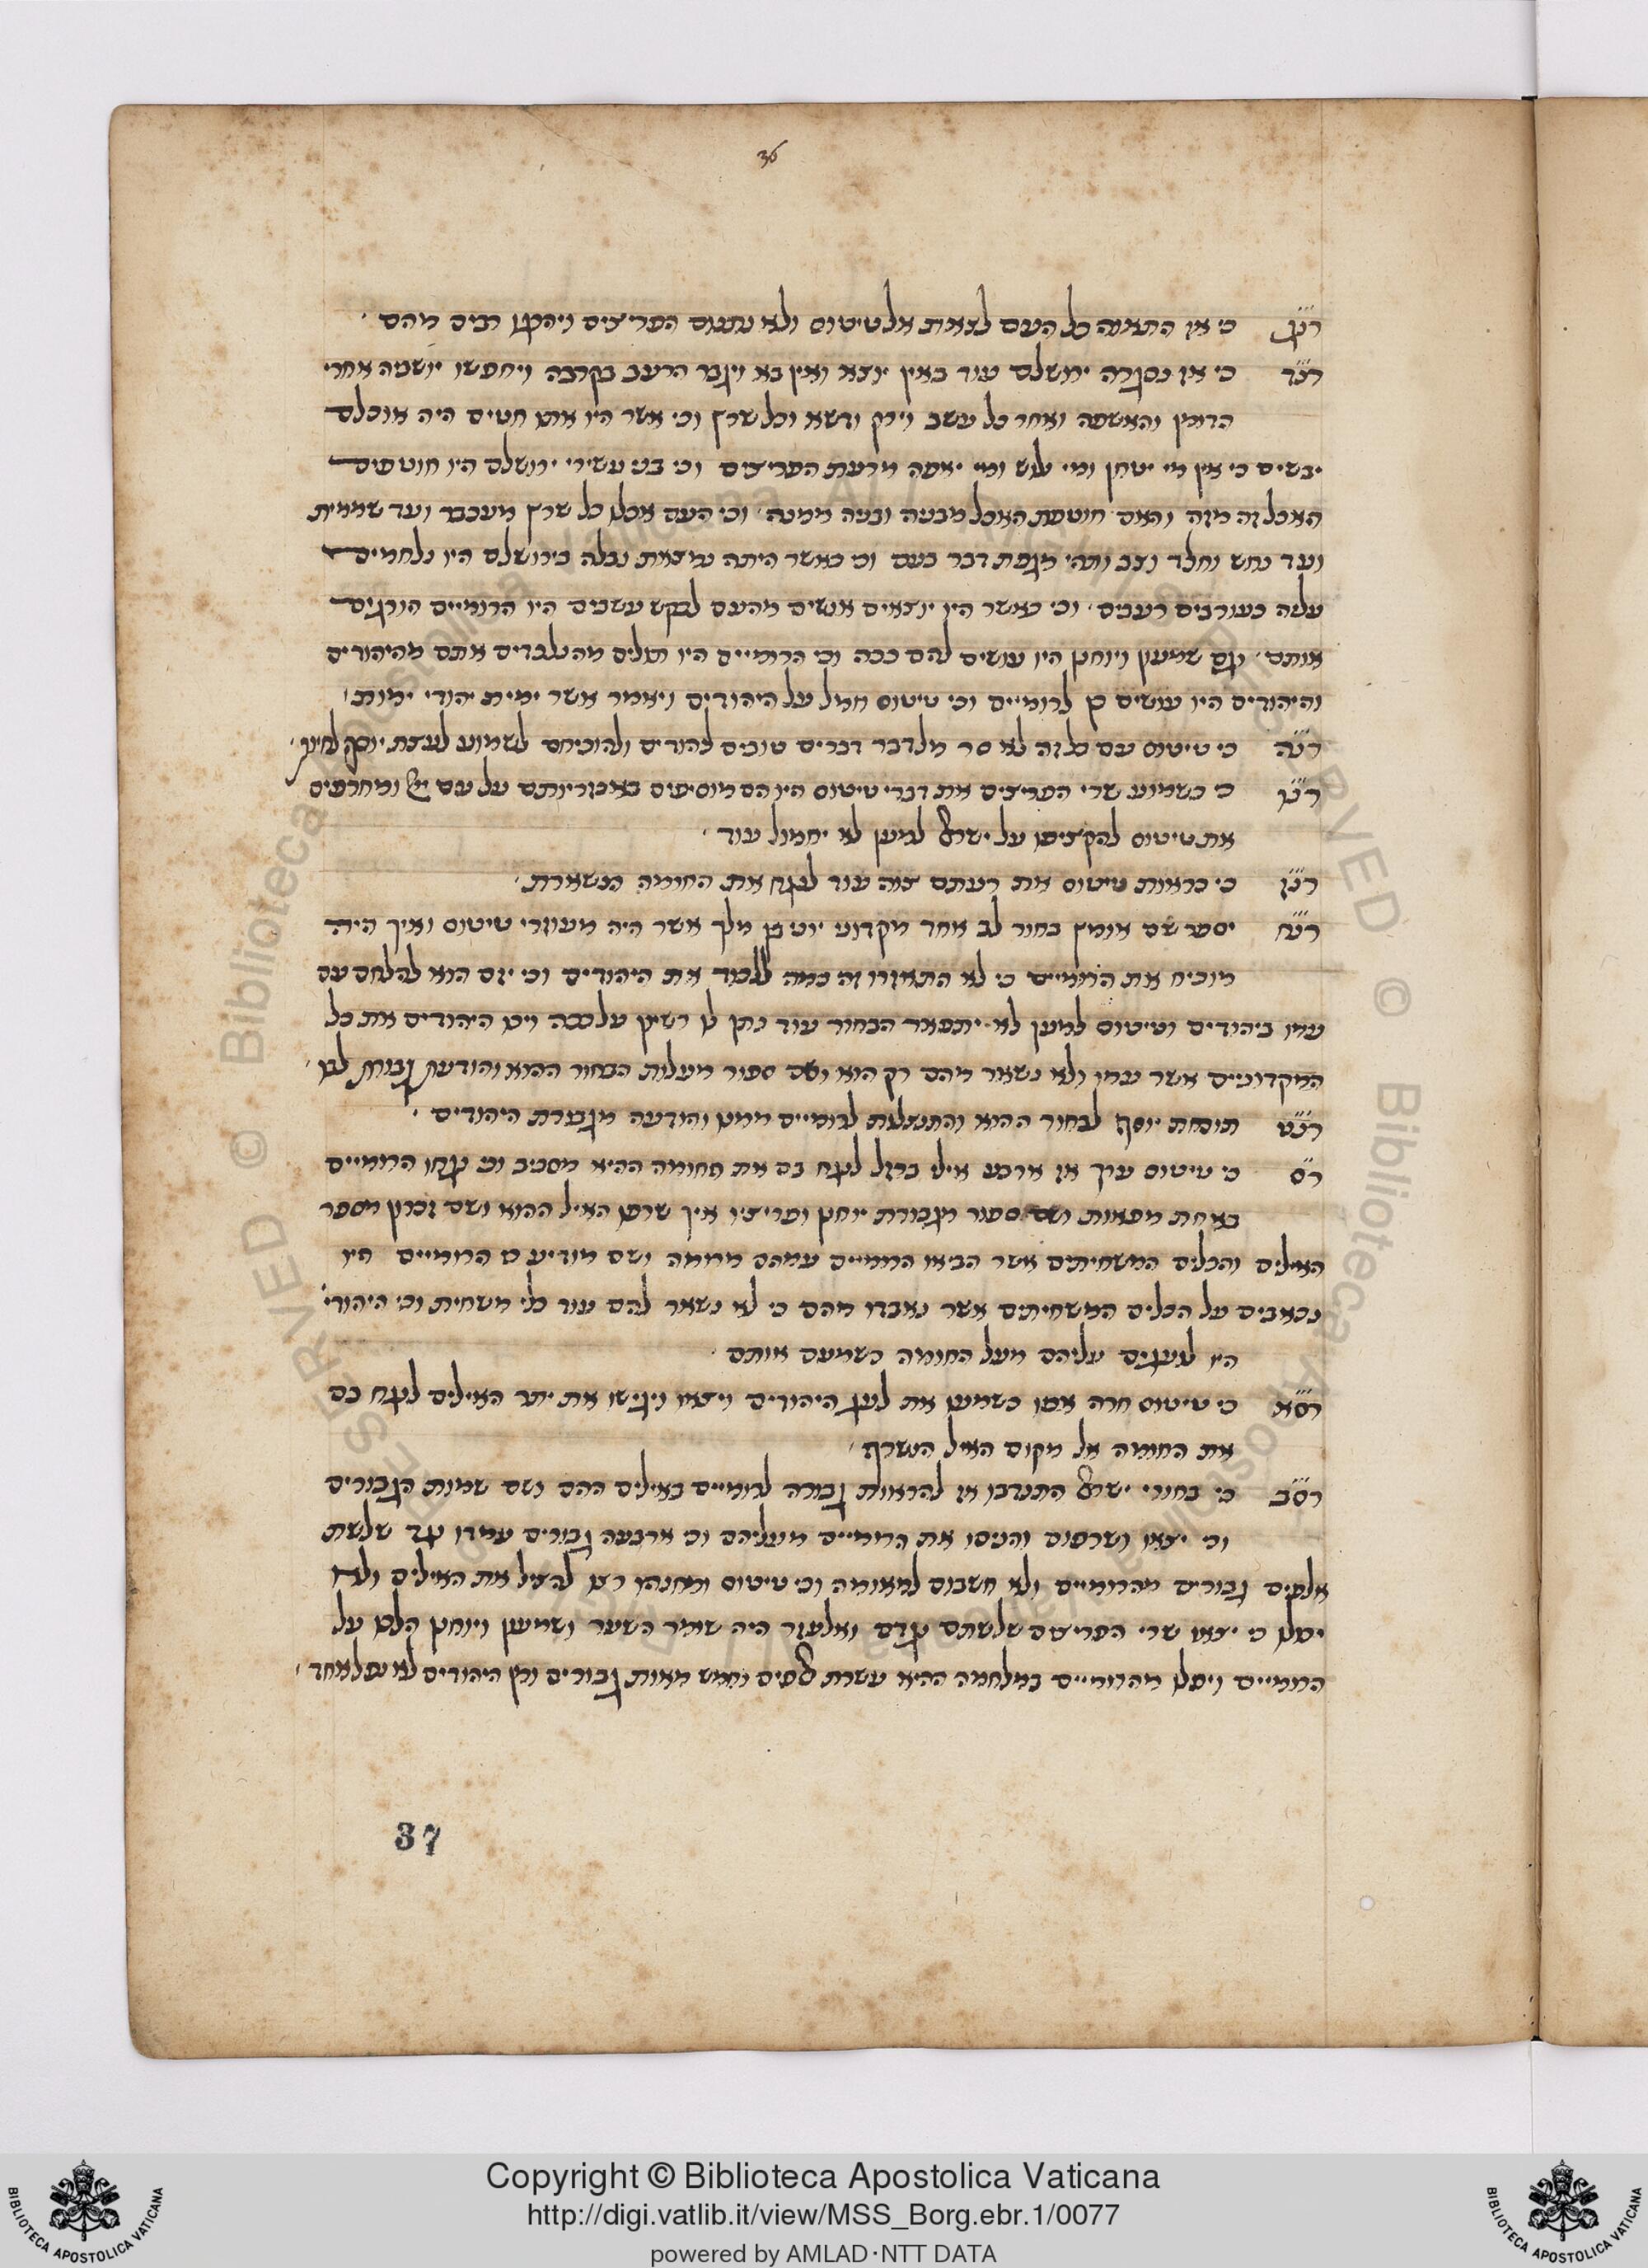 36
רנג כי אז התאוה כל העם לצאת אל טיטוס ולא נתנום הפריצים ויהרגו רבים מהם
רנד כי אז נסגרה ירושלם עוד באין יוצא ואין בא ויגבר הרעב בקרבה ויחפשו יושביה אחרי
הדומן והאשפה ואחר כל עשב וירק ודשא וכל שרץ וכי אשר היו אתו חטים היה אוכלם
יבשים כי אין מי יטחן ומי ילוש ומי יאפה מרעת הפריצים וכי בני עשירי ירושלם היו חוטפים
האכל זה מזה והאם חוטפת האכל מבניה ובניה ממנה וכי העם אכלו כל שרץ מעכבר ועד שממית
ועד נחש וחלד וצב ותהי מגפת דבר בעם וכי כאשר היתה נמצאת נבלה בירושלם היו נלחמים
עליה כעורבים רעבים וכי כאשר היו יוצאים אנשים מהעם לבקש עשבים היו הרומיים הורגים
אותם וגם שמעון ויוחנן היו עושים להם ככה וכי הרומיים היו תולים מהנלכדים אתם מהיהודים
והיהודים היו עושים כן לרומיים וכי טיטוס חמל על היהודים ויאמר אשר ימית יהודי ימות
רנה כי טיטוס עם כל זה לא סר מלדבר דברים טובים ליהודים ולהוכיחם לשמוע לעצת יוסף לחיות
רנו כי כשמוע שרי הפריצים את דברי טיטוס היו הם מוסיפים באכזריותם על עם יי ומחרפים
את טיטוס להקציפו על ישראל למען לא יחמול עוד
רנז כי כראות טיטוס את רעתם צוה עוד לנגח את החומה הנשארת
רנח יספר שם אומץ בחור לב אחד מקדוני יוני בן מלך אשר היה מעוזרי טיטוס ואיך היה
מוכיח את הרומיים כי לא התאזרו זה כמה ללכוד את היהודים וכי יזם הוא להלחם עם
עמו ביהודים וטיטוס למען לא יתפאר הבחור עוד נתן לו רשיון על ככה ויכו היהודים את כל
המקדוניים אשר עמו ולא נשאר מהם רק הוא ושם ספור מעלות הבחור ההוא והודעת גבורת לבו
רנט תוכחת יוסף לבחור ההוא והתנצלות לרומיים ממנו והודעה מגבורת היהודים
רס כי טיטוס ערך אז ארבע אילי ברזל לנגח בם את החומה ההיא מסביב וכי נגחו הרומיים
באחת מפאות ושם ספור מגבורת יוחנן ופריציו איך שרפו האיל ההוא ושם זכרון מספר
האילים והכלים המשחיתים אשר הביאו הרומיים עמהם מרומה ושם מודיע כי הרומיים היו
נכאבים על הכלים המשחיתים אשר נאבדו מהם כי לא נשאר להם עוד כלי משחית וכי היהודי
היו לועגים עליהם מעל החומה כשמעם אותם
רסא כי טיטוס חרה אפו כשמעו את לעג היהודים ויצאו ויגישו את יתר האילים לנגח בם
את החומה אל מקום האיל הנשרף
רסב כי בחורי ישראל התנדבו אז להראות גבורה לרומיים באילים ההם ושם שמות הגבורים
וכי יצאו ושרפום והניסו את הרומיים מעליהם וכי ארבעה גבורים עמדו נגד שלשת
אלפים גבורים מהרומיים ולא חשבום למאומה וכי טיטוס ומחנהו רצו להציל את האילים ולא
יכלו כי יצאו שרי הפריצים שלשתם נגדם ואלעזר היה שומר השער ושמעון ויוחנן הלכו על
הרומיים ויפלו מהרומיים במלחמה ההיא עשרת אלפים וחמש מאות גבורים ומן היהודים לא נפל אחד
37
Copyright © Biblioteca Apostolica Vaticana
http://digi.vatlib.it/view/MSS_Borg.ebr.1/0077
powered by AMLAD·NTT DATA